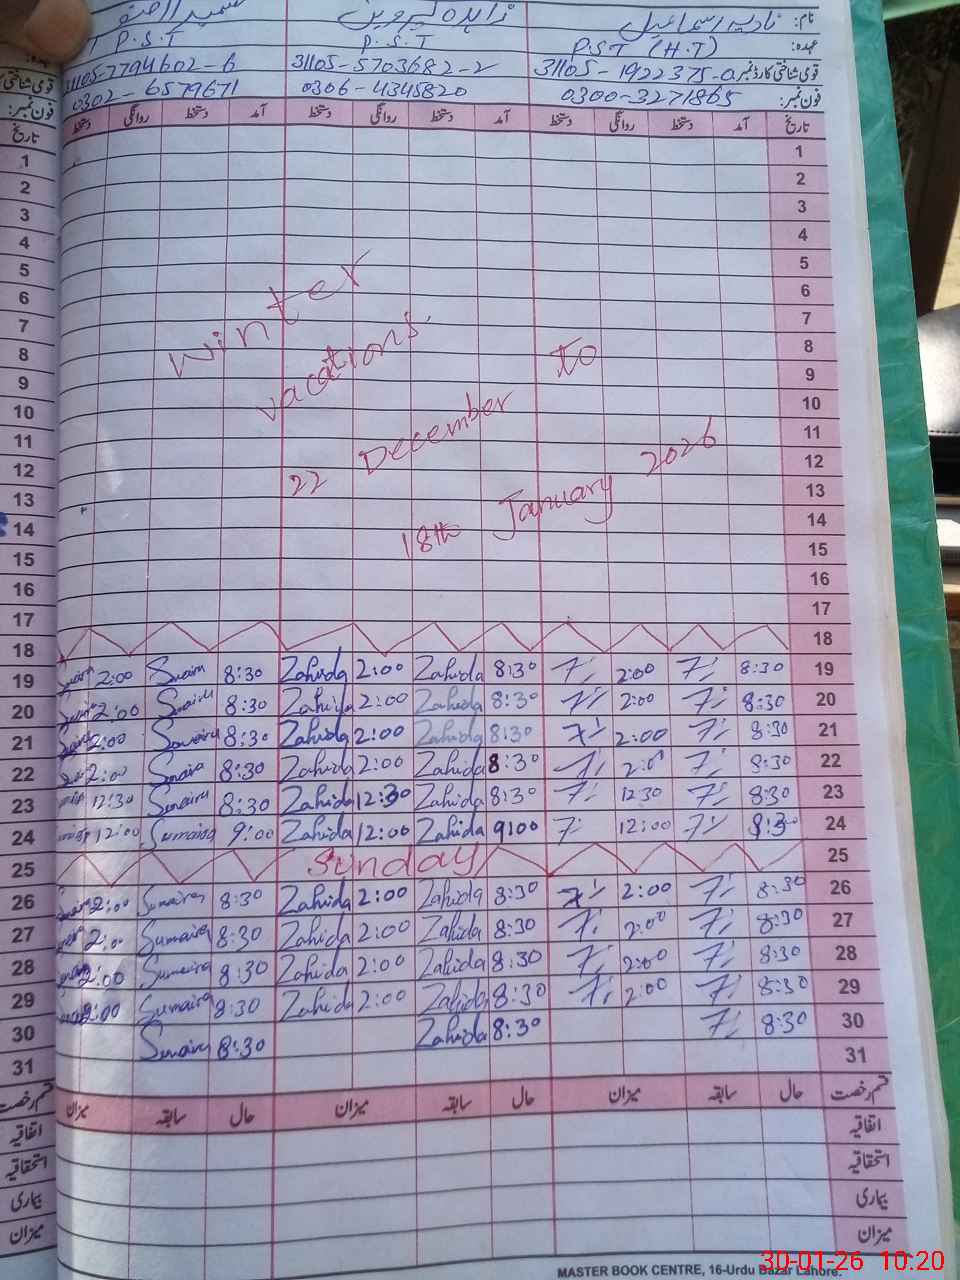 نام: نادیہ اسماعیل زاہدہ پروین
عہدہ: P.S.T (H.T) P.S.T P.S.T
قومی شناختی کارڈ نمبر 31105-1922375-0 31105-5703682-2 31105-7794602-6
فون نمبر: 0300-3271865 0306-4345820 0302-6579671
تاریخ آمد دستخط روانگی دستخط آمد دستخط روانگی دستخط آمد دستخط روانگی دستخط
1
2
3
4
5
6
7
8
9
10
11
12
13
14
15
16
17
18
winter
vacations.
22 December to
18th January 2026
19 8:30 2:00 8:30 Zahida 2:00 Zahida 8:30 Sumaira 2:00
20 8:30 2:00 8:30 Zahida 2:00 Zahida 8:30 Sumaira 2:00
21 8:30 2:00 8:30 Zahida 2:00 Zahida 8:30 Sumaira 2:00
22 8:30 2:00 8:30 Zahida 2:00 Zahida 8:30 Sumaira 2:00
23 8:30 12:30 8:30 Zahida 12:30 Zahida 8:30 Sumaira 12:30
24 8:30 12:00 9:00 Zahida 12:00 Zahida 9:00 Sumaira 12:00
25 Sunday
26 8:30 2:00 8:30 Zahida 2:00 Zahida 8:30 Sumaira 2:00
27 8:30 2:00 8:30 Zahida 2:00 Zahida 8:30 Sumaira 2:00
28 8:30 2:00 8:30 Zahida 2:00 Zahida 8:30 Sumaira 2:00
29 8:30 2:00 8:30 Zahida 2:00 Zahida 8:30 Sumaira 2:00
30 8:30 8:30 Zahida 8:30 Sumaira
31
قسم رخصت حال سابقہ میزان حال سابقہ میزان حال سابقہ میزان
اتفاقیہ
استحقاقیہ
بیماری
میزان
MASTER BOOK CENTRE, 16-Urdu Bazar Lahore.
30-01-26 10:20